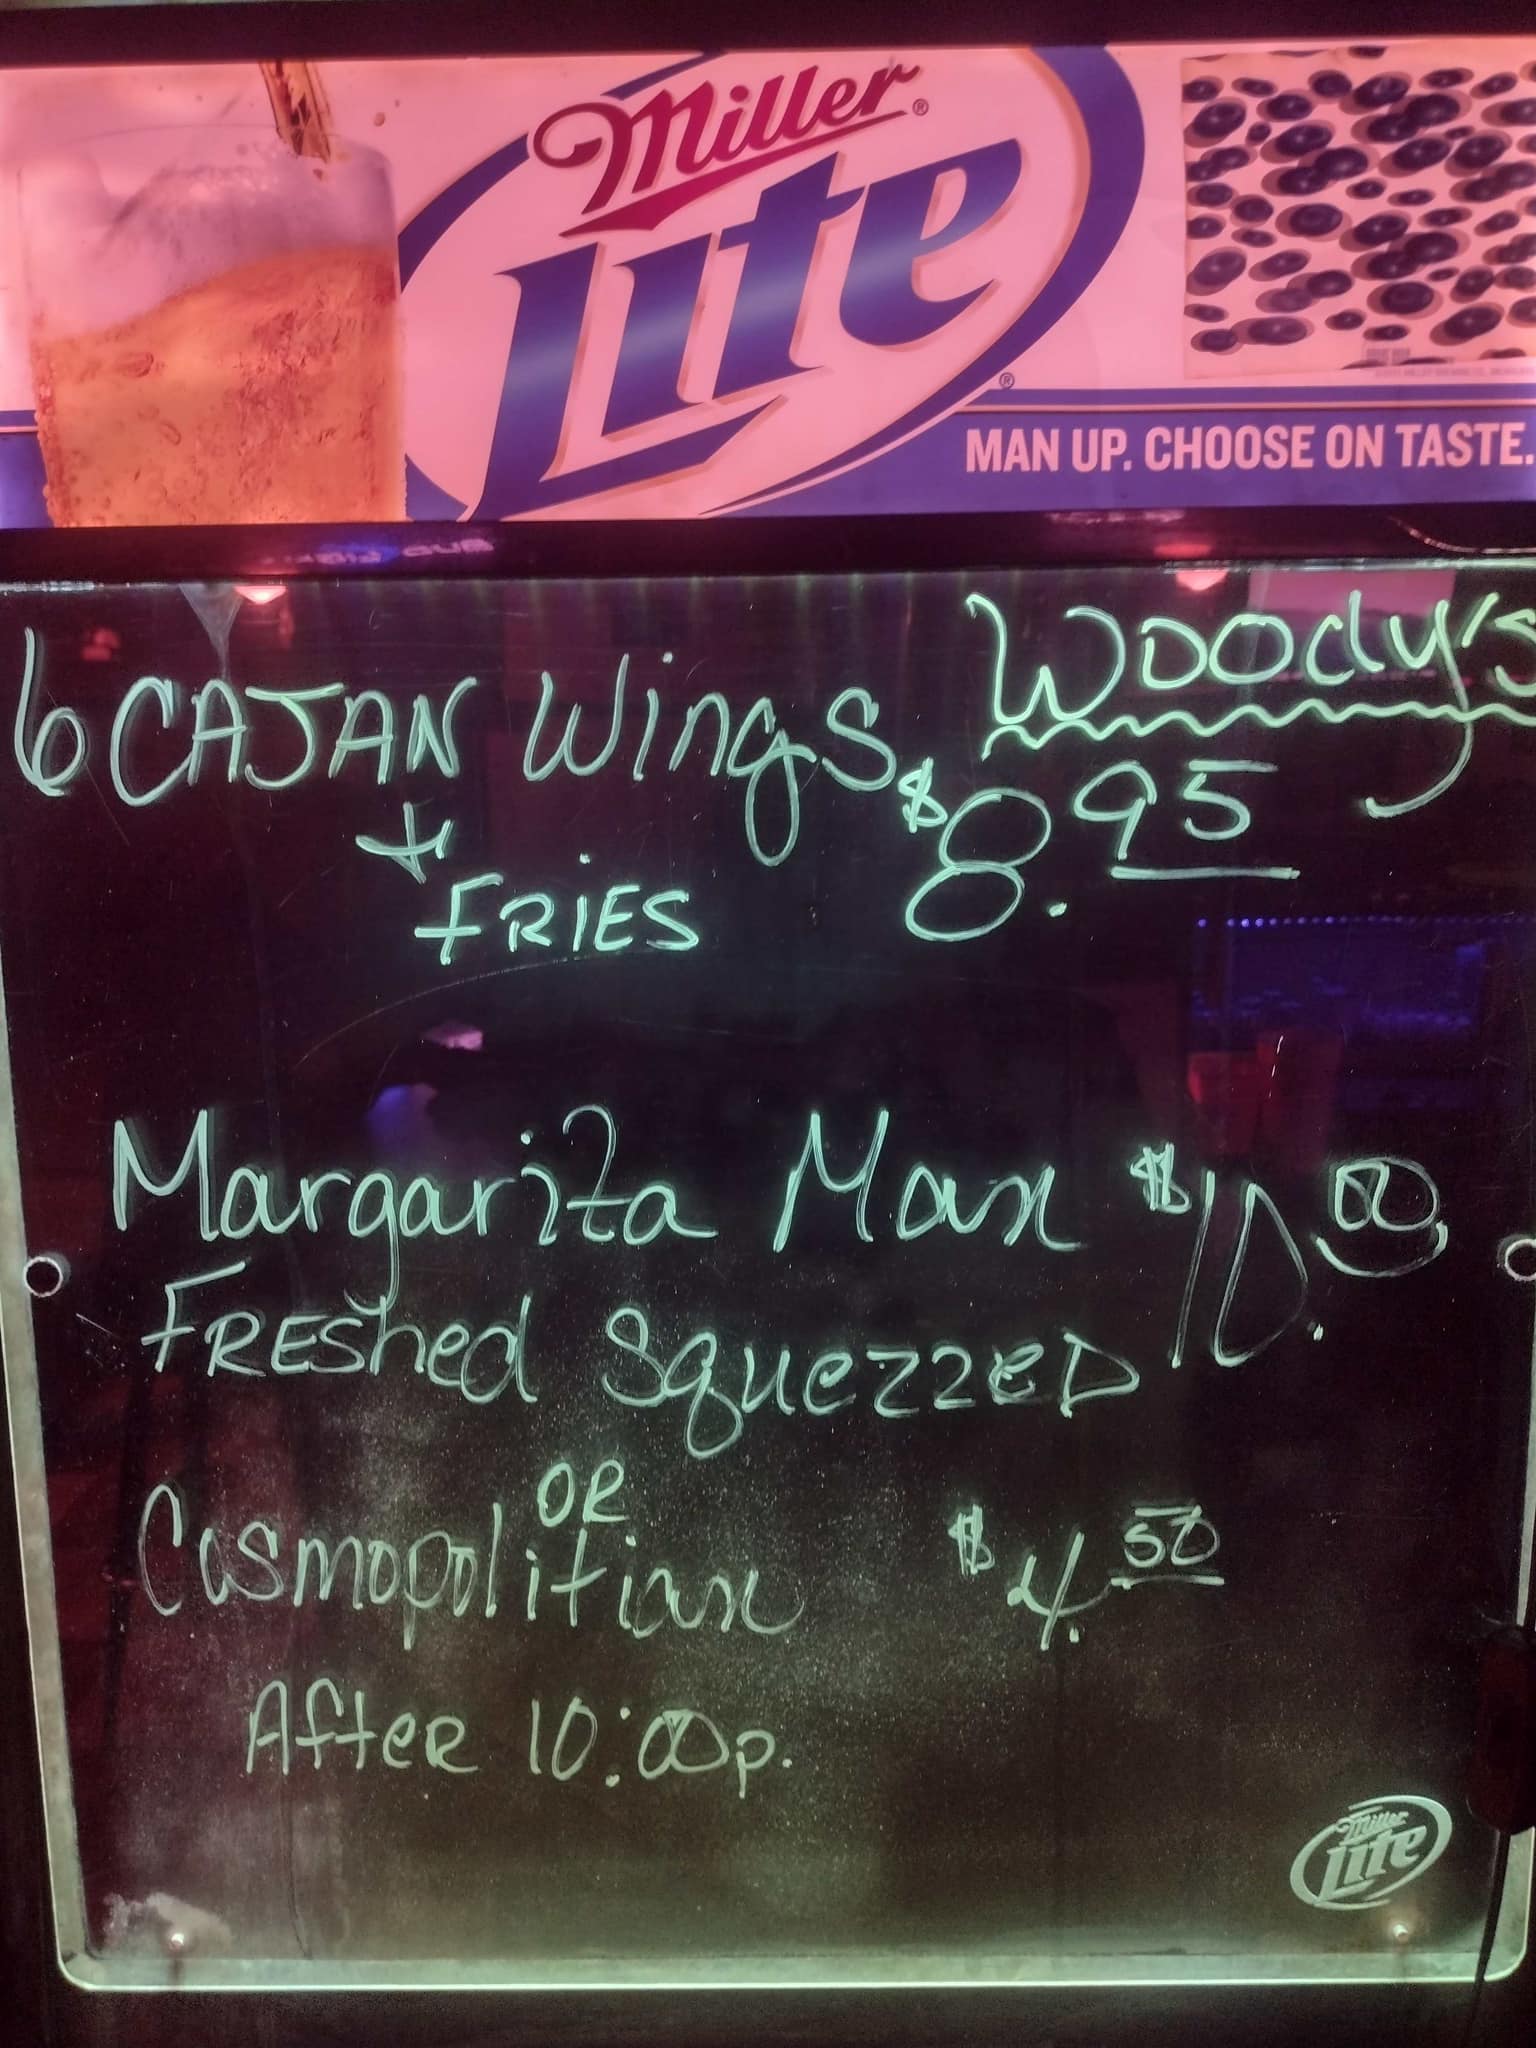 Miller®
Lite®
MAN UP. CHOOSE ON TASTE.
Woody's
6 CAJAN WingS $8.95
+
FRIES
Margarita Man $10.00
FREShed SquezzeD
OR
Cosmopolitian $4.50
AfteR 10:00p.
Miller
Lite